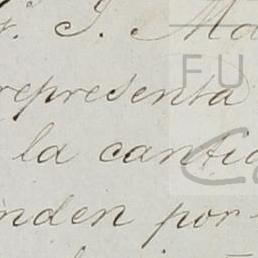 . J. Ma
representa
la cantid
nden por
FU